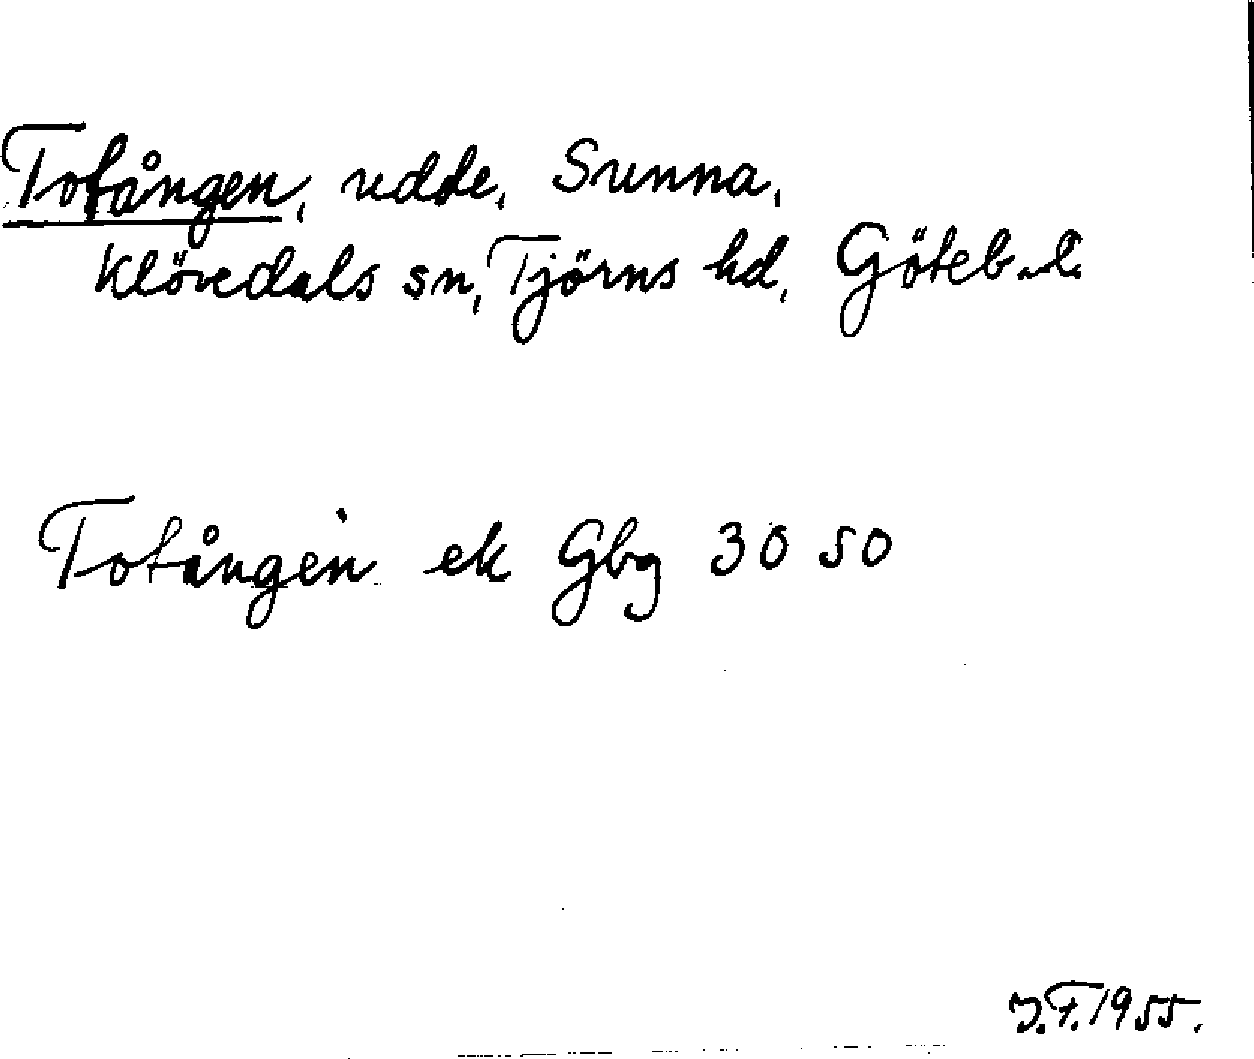 Tofången, udde, Sunna,
Klövedals sn, Tjörns hd, Göteb. l.
Tofången ek Gbg 30 50
J.F. 1955.